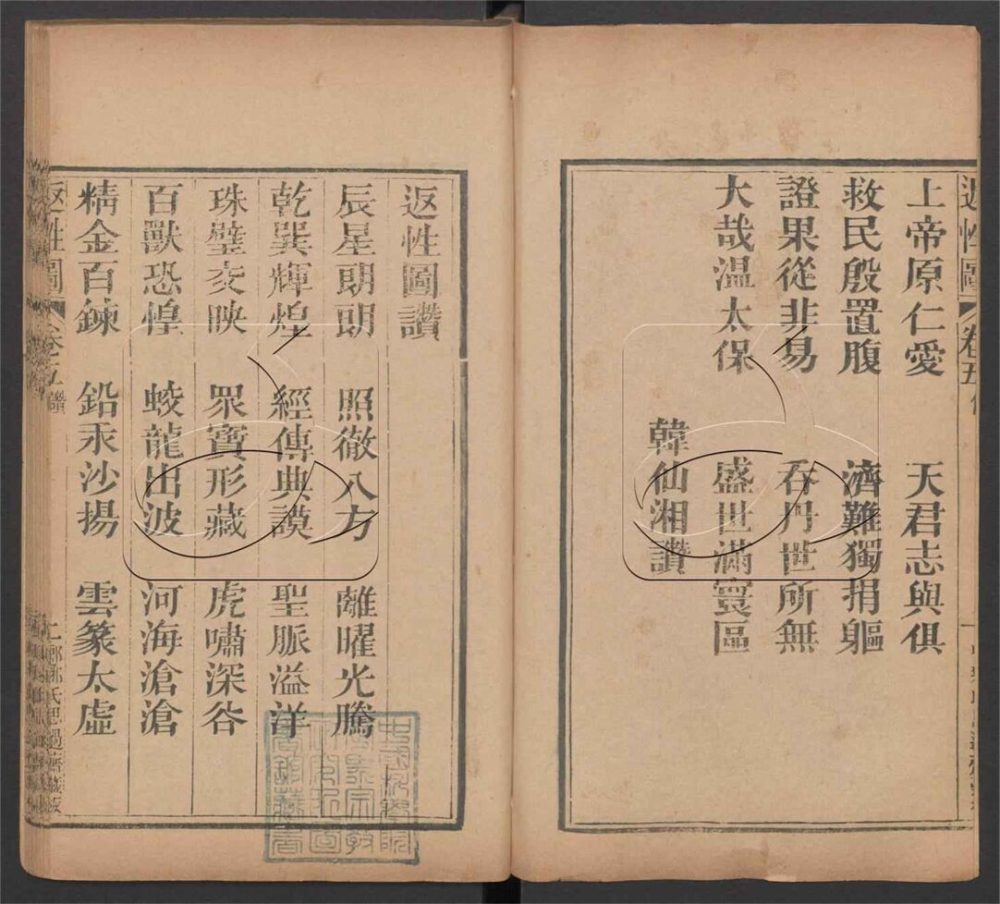 返性圖 卷五
上帝原仁愛 天君志與俱
救民殷置腹 濟難獨捐軀
證果從非易 吞丹世所無
大哉温太保 盛世滿寰區
韓仙湘讚
返性圖讚
辰星朗朗 照徹八方 離曜光騰
乾巽輝煌 經傳典謨 聖脈溢洋
珠璧交映 眾寶形藏 虎嘯深谷
百獸恐惶 蛟龍出波 河海滄滄
精金百鍊 鉛汞沙揚 雲篆太虛
返性圖 卷五 讚 氏思過齋藏板